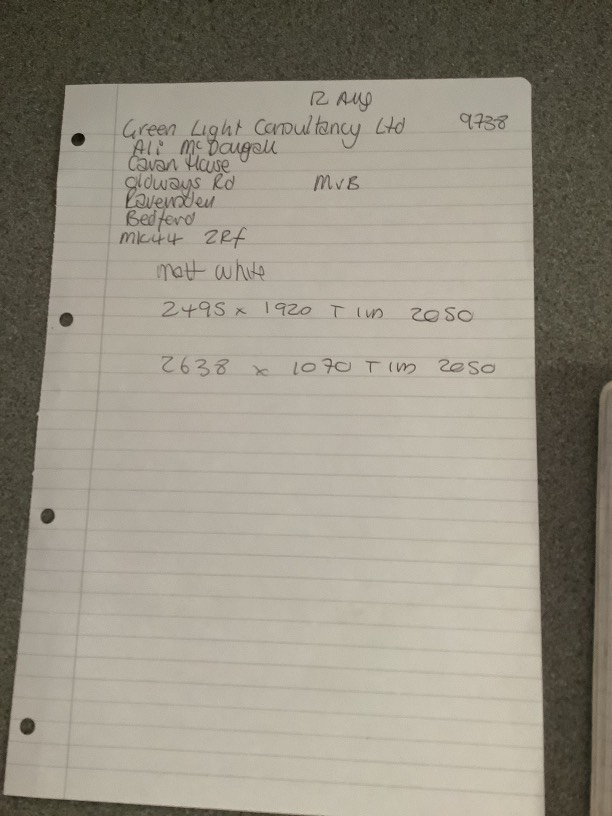 12 Aug
Green Light Consultancy Ltd 9738
Ali McDougall
Cavan House
Oldways Rd MVB
Ravensden
Bedford
MK44 2RF
matt white
2495 x 1920 T 1 in 2050
2638 x 1070 T 1 in 2050